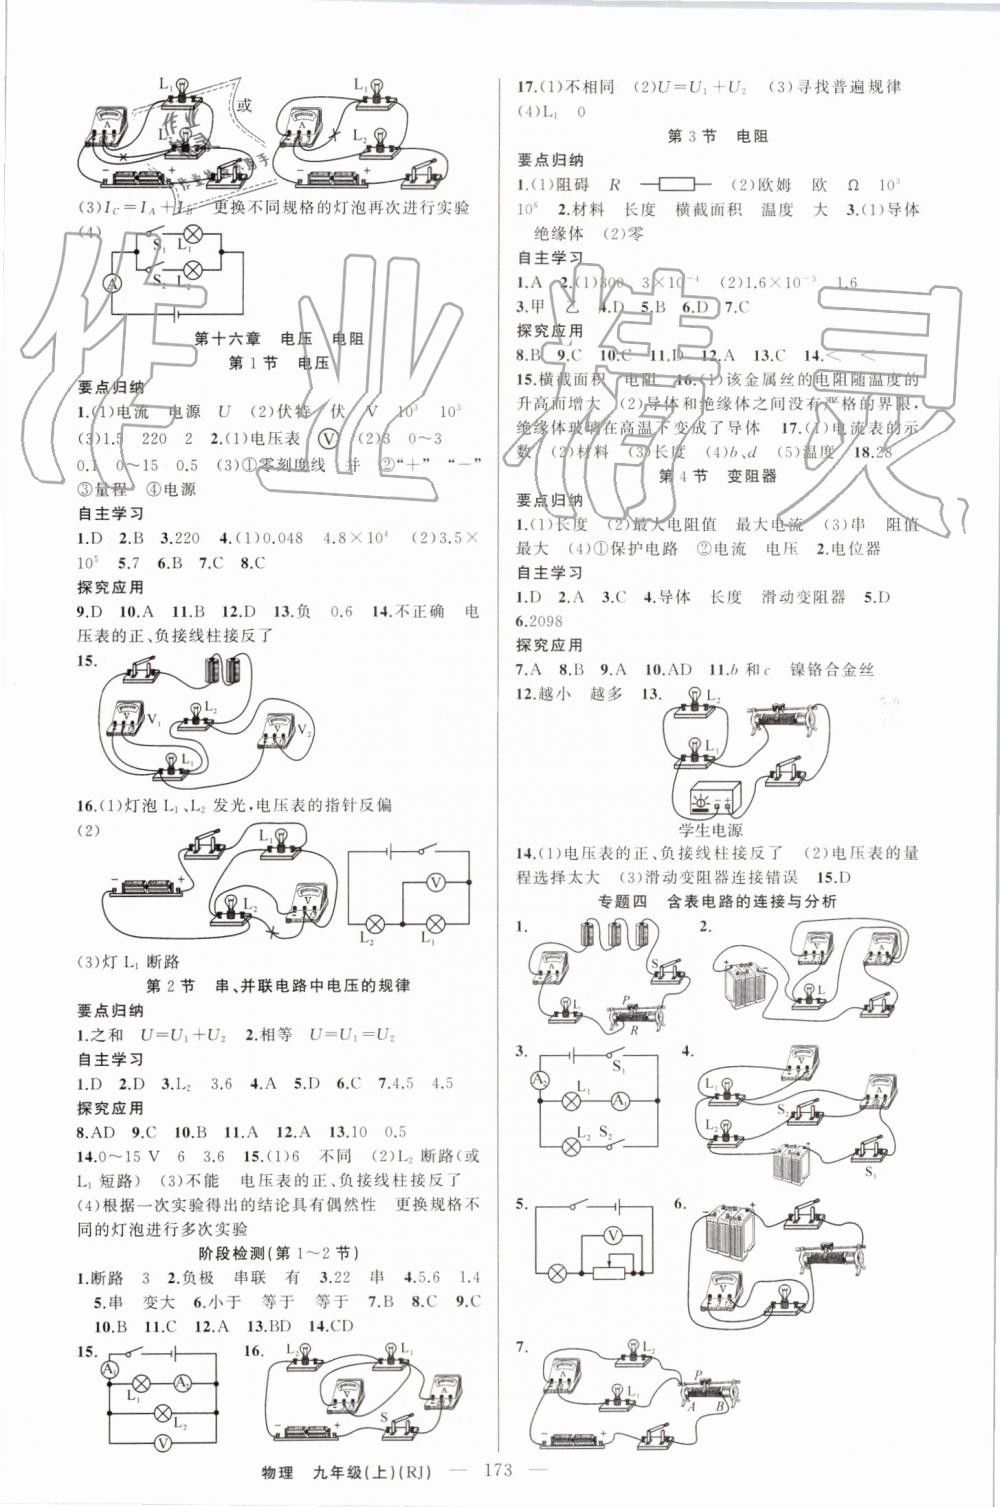 L₁
L₂
A
或
L₁
L₂
A
(3)I_C=I_A+I_B　更换不同规格的灯泡再次进行实验
(4)
S₁ L₁
S₂ L₂
A
第十六章　电压　电阻
第1节　电压
要点归纳
1.(1)电流　电源　U　(2)伏特　伏　V　10³　10³
(3)1.5　220　2　2.(1)电压表　Ⓥ　(2)3　0～3
0.1　0～15　0.5　(3)①零刻度线　并　②“＋”　“－”
③量程　④电源
自主学习
1.D　2.B　3.220　4.(1)0.048　4.8×10⁴　(2)3.5×
10⁵　5.7　6.B　7.C　8.C
探究应用
9.D　10.A　11.B　12.D　13.负　0.6　14.不正确　电
压表的正、负接线柱接反了
15.
V₁
L₂
V₂
L₁
16.(1)灯泡 L₁、L₂ 发光,电压表的指针反偏
(2)
L₁
L₂
V
L₂ L₁
(3)灯 L₁ 断路
第2节　串、并联电路中电压的规律
要点归纳
1.之和　U=U₁+U₂　2.相等　U=U₁=U₂
自主学习
1.D　2.D　3.L₂　3.6　4.A　5.D　6.C　7.4.5　4.5
探究应用
8.AD　9.C　10.B　11.A　12.A　13.10　0.5
14.0～15 V　6　3.6　15.(1)6　不同　(2)L₂ 断路(或
L₁ 短路)　(3)不能　电压表的正、负接线柱接反了
(4)根据一次实验得出的结论具有偶然性　更换规格不
同的灯泡进行多次实验
阶段检测(第1～2节)
1.断路　3　2.负极　串联　有　3.22　串　4.5.6　1.4
5.串　变大　6.小于　等于　等于　7.B　8.C　9.C
10.B　11.C　12.A　13.BD　14.CD
15.
A₁
L₁ A₂
L₂
V
16.
L₂ L₁
V
A
S
17.(1)不相同　(2)U=U₁+U₂　(3)寻找普遍规律
(4)L₁　0
第3节　电阻
要点归纳
1.(1)阻碍　R　(2)欧姆　欧　Ω　10³
10⁶　2.材料　长度　横截面积　温度　大　3.(1)导体
绝缘体　(2)零
自主学习
1.A　2.(1)300　3×10⁻⁴　(2)1.6×10⁻³　1.6
3.甲　乙　4.D　5.B　6.D　7.C
探究应用
8.B　9.C　10.C　11.D　12.A　13.C　14.＜　＜
15.横截面积　电阻　16.(1)该金属丝的电阻随温度的
升高而增大　(2)导体和绝缘体之间没有严格的界限,
绝缘体玻璃在高温下变成了导体　17.(1)电流表的示
数　(2)材料　(3)长度　(4)b、d　(5)温度　18.28
第4节　变阻器
要点归纳
1.(1)长度　(2)最大电阻值　最大电流　(3)串　阻值
最大　(4)①保护电路　②电流　电压　2.电位器
自主学习
1.D　2.A　3.C　4.导体　长度　滑动变阻器　5.D
6.2098
探究应用
7.A　8.B　9.A　10.AD　11.b 和 c　镍铬合金丝
12.越小　越多　13.
L₂
L₁
学生电源
14.(1)电压表的正、负接线柱接反了　(2)电压表的量
程选择太大　(3)滑动变阻器连接错误　15.D
专题四　含表电路的连接与分析
1.
A
S
L
P
R
2.
V
A
L
S
3.
S₁
A₂
L₁ A₁
L₂ S₂
4.
L₁
A
S₂
L₂
S₁
5.
V
6.
V
L
7.
L
A
P
A B
物理　九年级(上)(RJ)　—　173　—
作业精灵